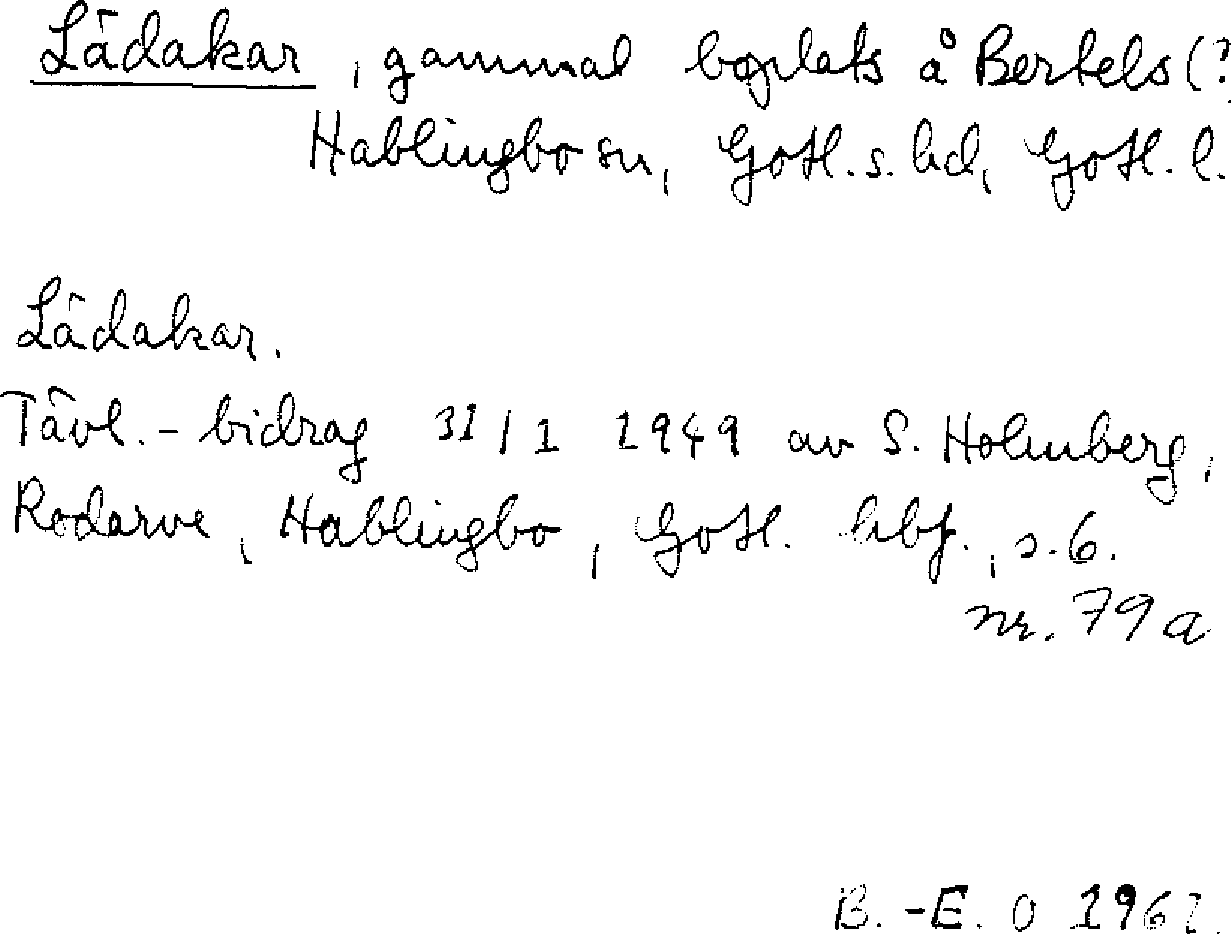 Lädakar, gammal boplats å Bertels (?
Hablingbo sn, Gotl. s. hd, Gotl. l.
Lädakar.
Tävl. - bidrag 31/1 1949 av S. Holmberg,
Rodarve, Hablingbo, Gotl. hbf., s. 6.
nr. 79 a
B. -E. O